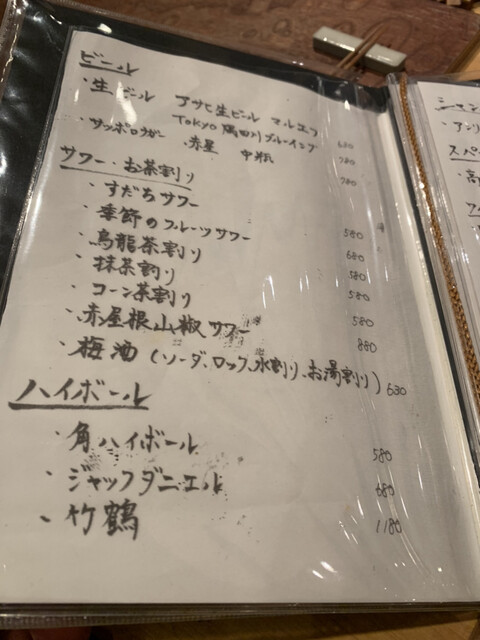 ビール
・生ビール アサヒ生ビール マルエフ 680
Tokyo 隅田川ブルーイング 780
・サッポロラガー 赤星 中瓶 780
サワー・お茶割り
・すだちサワー 580
・季節のフルーツサワー 680
・烏龍茶割り 580
・抹茶割り 580
・コーン茶割り 580
・赤屋根山椒サワー 880
・梅酒(ソーダ、ロック、水割り、お湯割り) 630
ハイボール
・角ハイボール 580
・ジャックダニエル 680
・竹鶴 1180
シャン
・アンリ
スパ